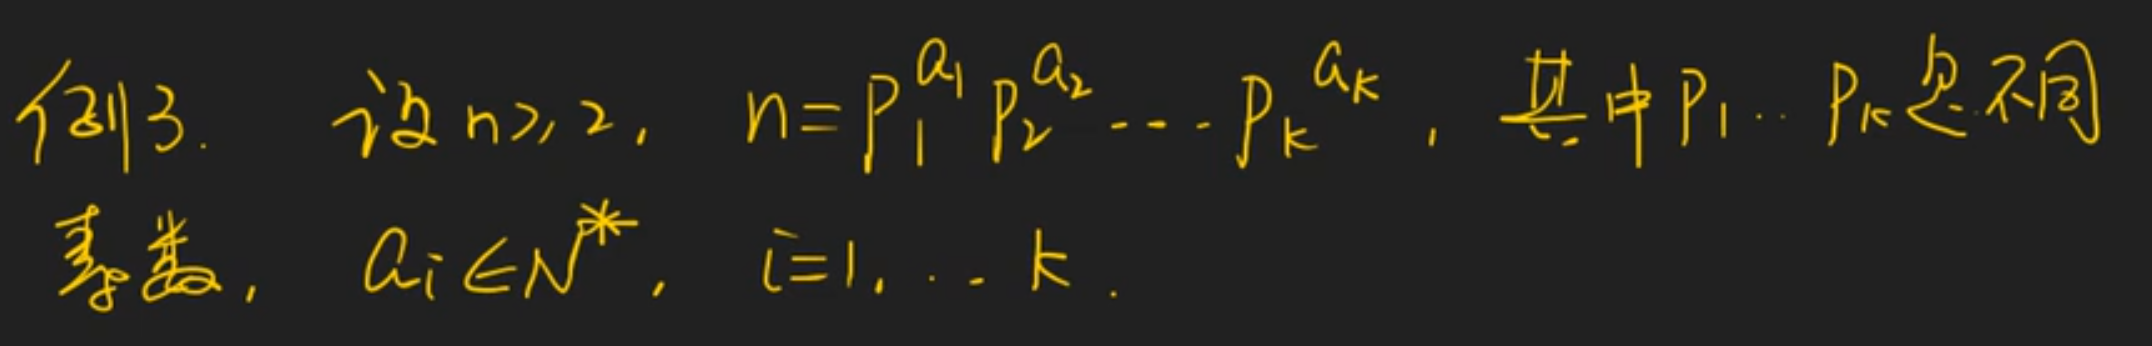 例3. 设n≥2, n=p₁^{a₁} p₂^{a₂} ---- p_k^{a_k}, 其中p₁..p_k是不同
素数, aᵢ∈N*, i=1,...k.